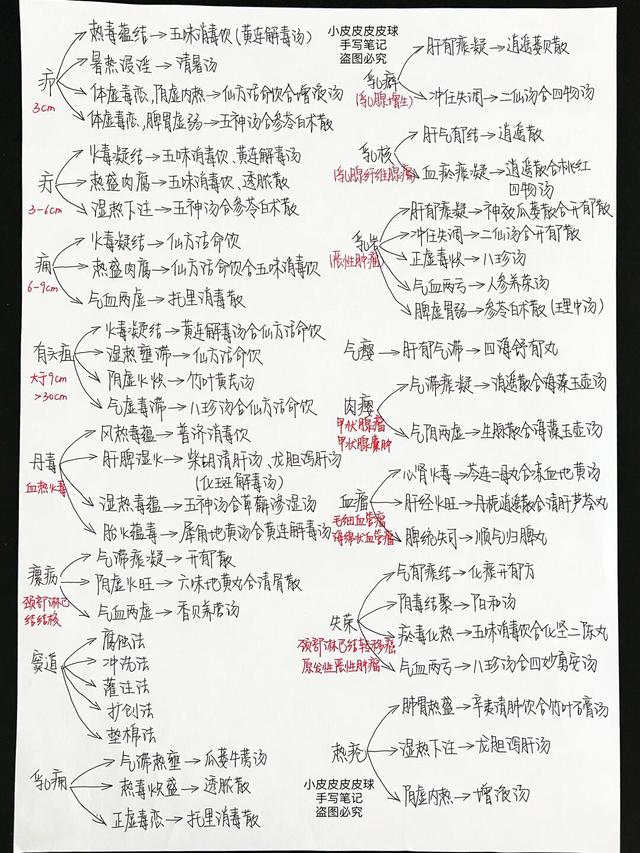 疖
3cm
热毒蕴结→五味消毒饮(黄连解毒汤)
暑热浸淫→清暑汤
体虚毒恋,阴虚内热→仙方活命饮合增液汤
体虚毒恋,脾胃虚弱→五神汤合参苓白术散
疔
3-6cm
火毒凝结→五味消毒饮、黄连解毒汤
热盛肉腐→五味消毒饮、透脓散
湿热下注→五神汤合参苓白术散
痈
6-9cm
火毒凝结→仙方活命饮
热盛肉腐→仙方活命饮合五味消毒饮
气血两虚→托里消毒散
有头疽
大于9cm
>30cm
火毒凝结→黄连解毒汤合仙方活命饮
湿热壅滞→仙方活命饮
阴虚火炽→竹叶黄芪汤
气虚毒滞→八珍汤合仙方活命饮
丹毒
血热火毒
风热毒蕴→普济消毒饮
肝脾湿火→柴胡清肝汤、龙胆泻肝汤
(化斑解毒汤)
湿热毒蕴→五神汤合萆薢渗湿汤
胎火蕴毒→犀角地黄汤合黄连解毒汤
瘰疬
颈部淋巴
结结核
气滞痰凝→开郁散
阴虚火旺→六味地黄丸合清骨散
气血两虚→香贝养荣汤
窦道
腐蚀法
冲洗法
灌注法
扩创法
垫棉法
乳痈
气滞热壅→瓜蒌牛蒡汤
热毒炽盛→透脓散
正虚毒恋→托里消毒散
小皮皮皮皮球
手写笔记
盗图必究
乳癖
(乳腺增生)
肝郁痰凝→逍遥蒌贝散
冲任失调→二仙汤合四物汤
乳核
(乳腺纤维腺瘤)
肝气郁结→逍遥散
血瘀痰凝→逍遥散合桃红
四物汤
乳岩
(恶性肿瘤)
肝郁痰凝→神效瓜蒌散合开郁散
冲任失调→二仙汤合开郁散
正虚毒炽→八珍汤
气血两亏→人参养荣汤
脾虚胃弱→参苓白术散(理中汤)
气瘿→肝郁气滞→四海舒郁丸
肉瘿
甲状腺瘤
甲状腺囊肿
气滞痰凝→逍遥散合海藻玉壶汤
气阴两虚→生脉散合海藻玉壶汤
血瘤
毛细血管瘤
海绵状血管瘤
心肾火毒→芩连二母丸合凉血地黄汤
肝经火旺→丹栀逍遥散合清肝芦荟丸
脾统失司→顺气归脾丸
失荣
颈部淋巴结转移癌
原发性恶性肿瘤
气郁痰结→化痰开郁方
阴毒结聚→阳和汤
瘀毒化热→五味消毒饮合化坚二陈丸
气血两亏→八珍汤合四妙勇安汤
热疮
肺胃热盛→辛夷清肺饮合竹叶石膏汤
湿热下注→龙胆泻肝汤
阴虚内热→增液汤
小皮皮皮皮球
手写笔记
盗图必究